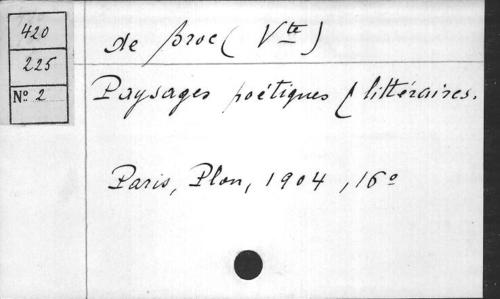 420
225
Nº 2
de Broc ( Vte )
Paysages poétiques & littéraires.
Paris, Plon, 1904, 16º